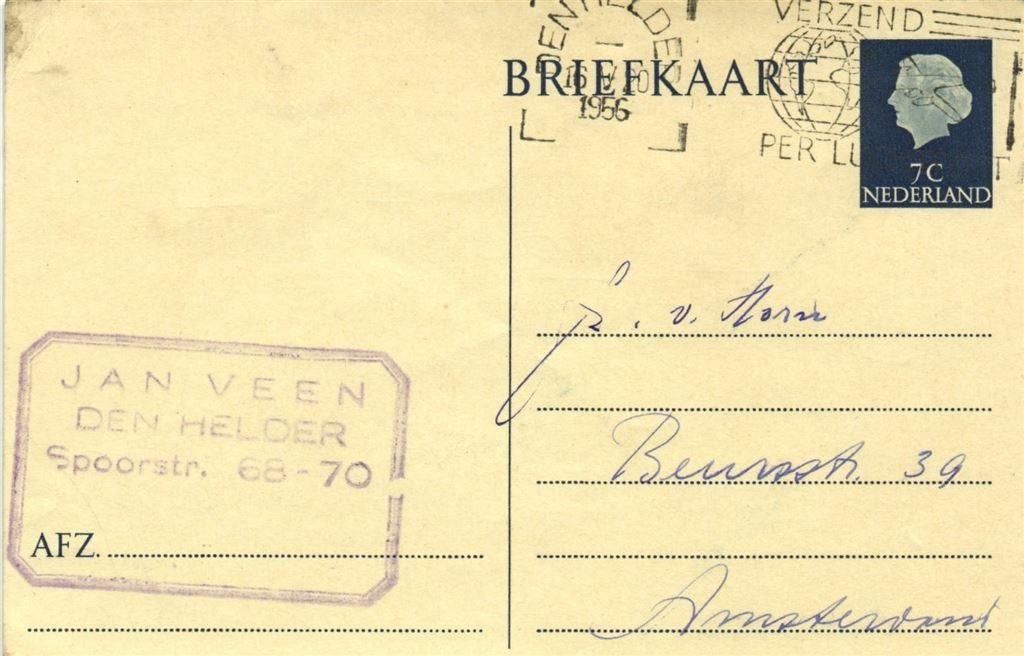 DEN HELDER
1956
VERZEND
PER LU T
BRIEFKAART
7 C
NEDERLAND
v. Horn
Beursstr. 39
Amsterdam
JAN VEEN
DEN HELDER
Spoorstr. 68-70
AFZ.